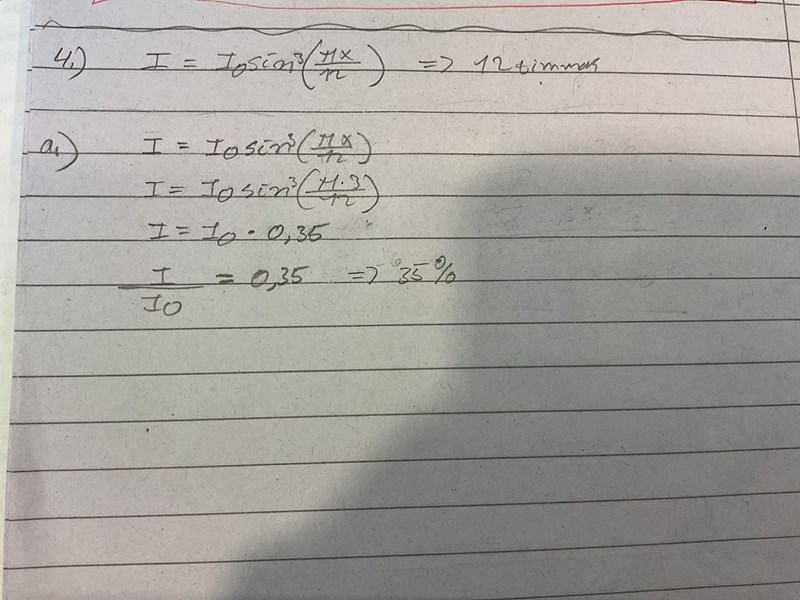 4.) I = I0 sin³(πx/12) => 12 timmar
a.) I = I0 sin³(πx/12)
I = I0 sin³(π·3/12)
I = I0 · 0,35
I/I0 = 0,35 => 35%